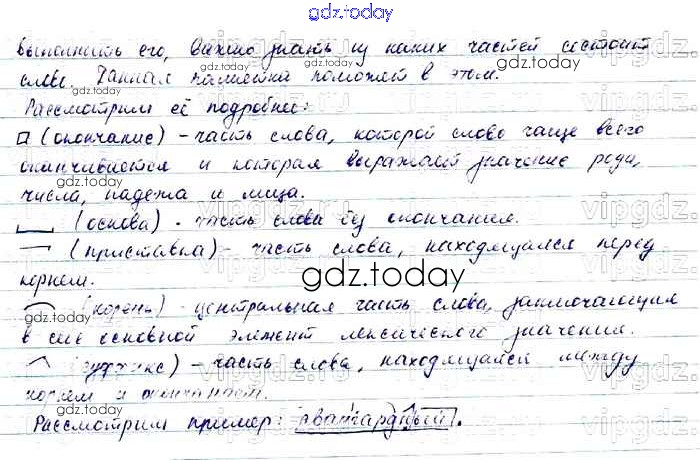 gdz.today
выполнить его, важно знать из каких частей состоит
слово. Данная памятка поможет в этом.
gdz.today
Рассмотрим её подробнее:
(окончание) - часть слова, которой слово чаще всего
оканчивается и которая выражает значение рода,
gdz.today
числа, падежа и лица.
(основа) - часть слова без окончания.
(приставка) - часть слова, находящаяся перед
корнем.
gdz.today
(корень) - центральная часть слова, заключающая
в себе основной элемент лексического значения.
gdz.today
(суффикс) - часть слова, находящаяся между
корнем и окончанием.
gdz.today
Рассмотрим пример: авангардный.
vipgdz.ru